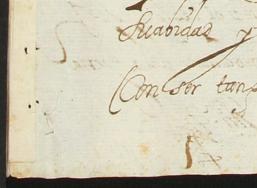 Suabidad y
Con ser tan